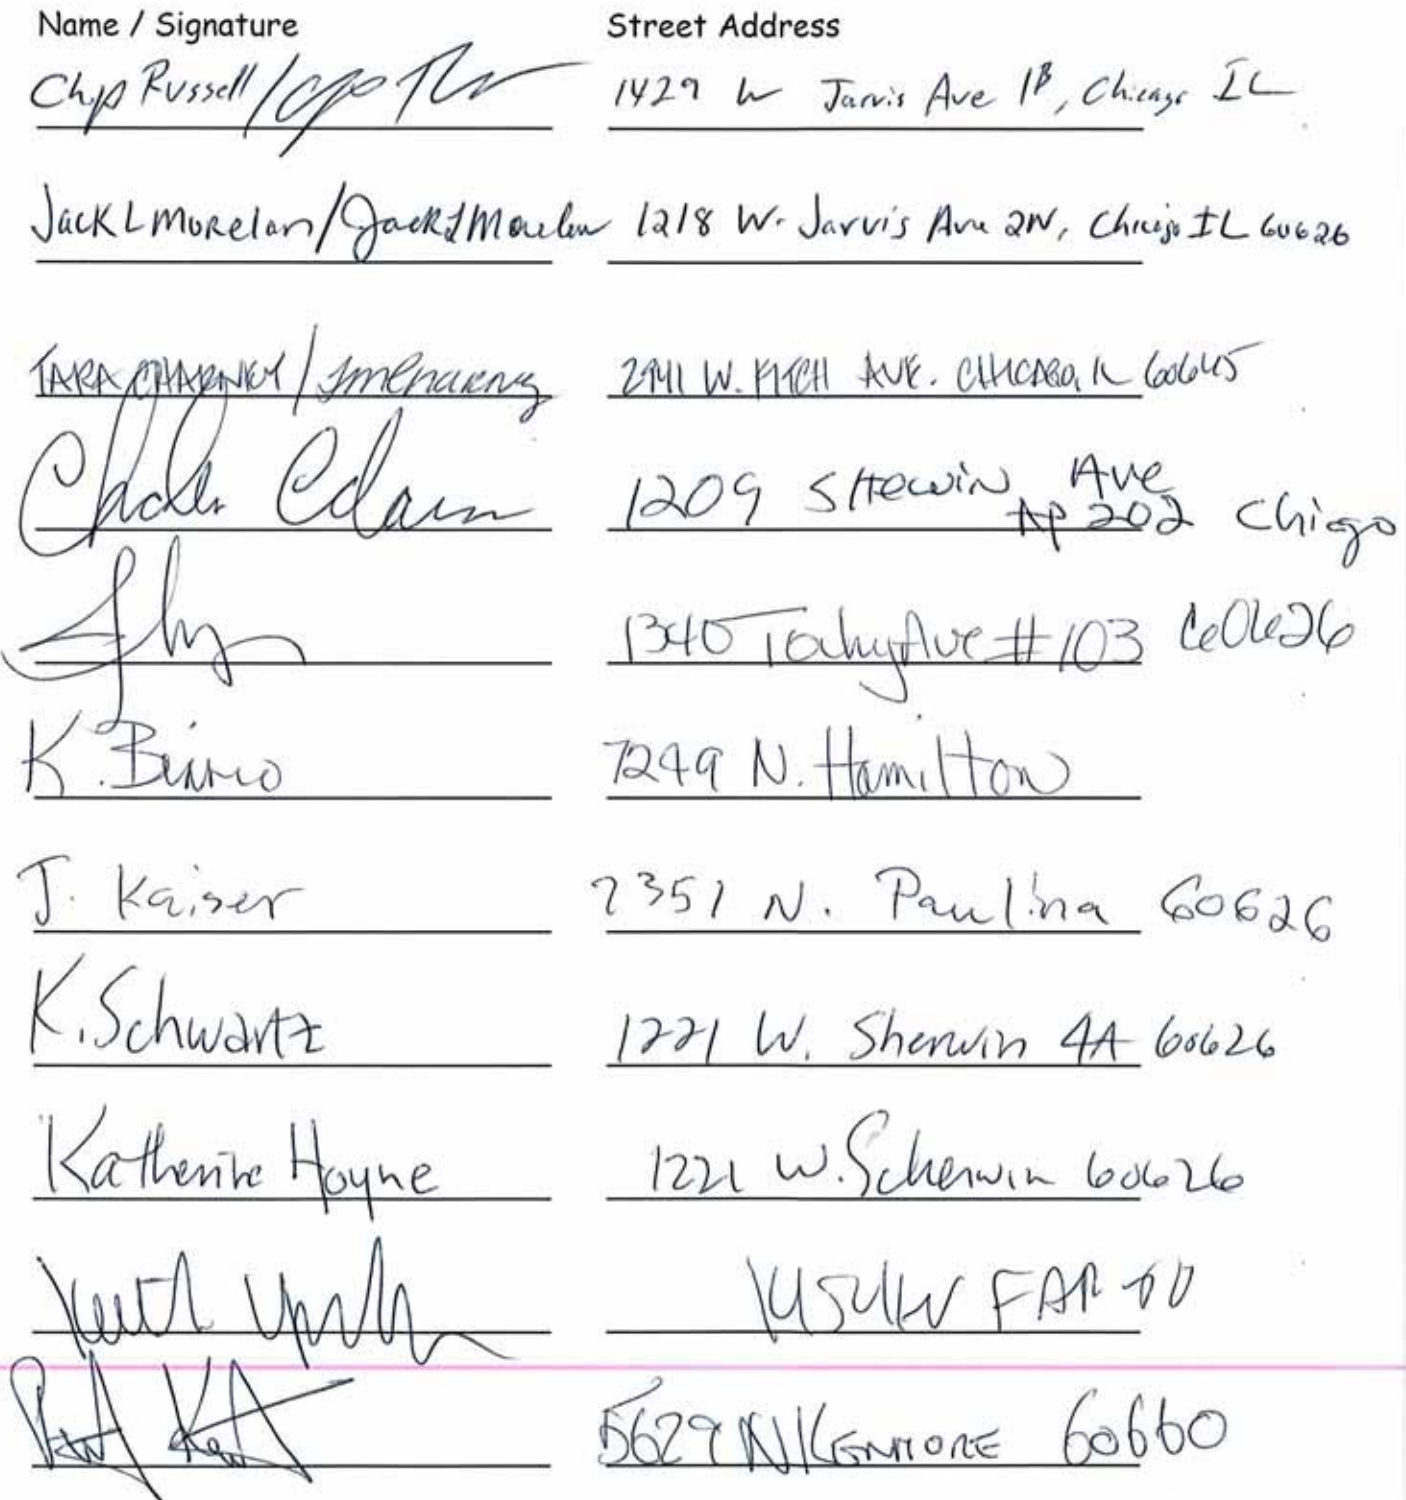 Name / Signature Street Address
Chip Russell / 1429 W Jarvis Ave 1B, Chicago IL
Jack L Morelan / Jack L Morelan 1218 W. Jarvis Ave 2N, Chicago IL 60626
TARA CHARNEY / 2941 W. FITCH AVE. CHICAGO, IL 60645
Charles 1209 SHEWIN Ave AP 202 Chicgo
1340 Touhy Ave #103 60626
K. 7249 N. Hamilton
J. Kaiser 7351 N. Paulina 60626
K. Schwartz 1221 W. Sherwin 4A 60626
Katherine Hoyne 1221 W. Scherwin 60626
Keith
5629 N KENMORE 60660